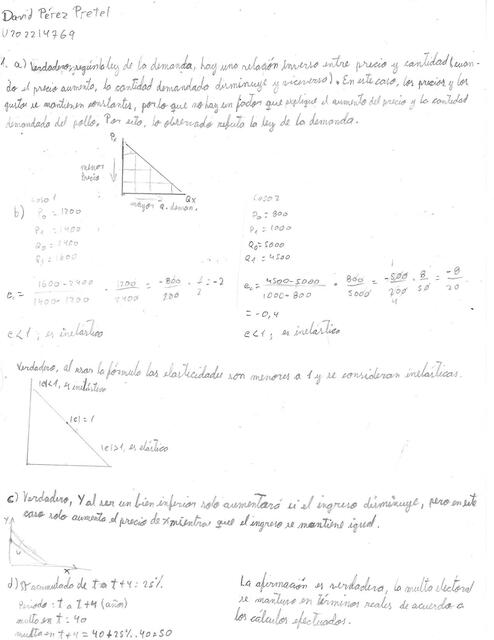 David Pérez Pretel
U202214769
1. a) Verdadero, según la ley de la demanda, hay una relación inversa entre precio y cantidad (cuan-
do el precio aumenta, la cantidad demandada disminuye y viceversa). En este caso, los precios y los
gustos se mantienen constantes, por lo que no hay un factor que explique el aumento del precio y la cantidad
demandada del pollo. Por esto, lo observado refuta la ley de la demanda.
Px
menor
precio
Qx
mayor Q. deman.
b)
caso 1
P0 = 1200
P1 = 1400
Q0 = 2400
Q1 = 1600
ec = 1600-2400 / 1400-1200 · 1200 / 2400 = -800 / 200 · 1 / 2 = -2
e<1, es inelástico
caso 2
P0 = 800
P1 = 1000
Q0 = 5000
Q1 = 4500
ec = 4500-5000 / 1000-800 · 800 / 5000 = -500 / 200 · 8 / 50 = -8 / 20
= -0,4
e<1, es inelástico
Verdadero, al usar la fórmula las elasticidades son menores a 1 y se consideran inelásticas.
|e|<1, es inelástico
|e|=1
|e|>1, es elástico
c) Verdadero, Y al ser un bien inferior solo aumentará si el ingreso disminuye, pero en este
caso solo aumenta el precio de x mientras que el ingreso se mantiene igual.
Y
x
d) acumulado de t a t+4 = 25%
Periodo: t a t+4 (años)
multa en t: 40
multa en t+4 = 40+25%.40=50
La afirmación es verdadera, la multa electoral
se mantuvo en términos reales de acuerdo a
los cálculos efectuados.